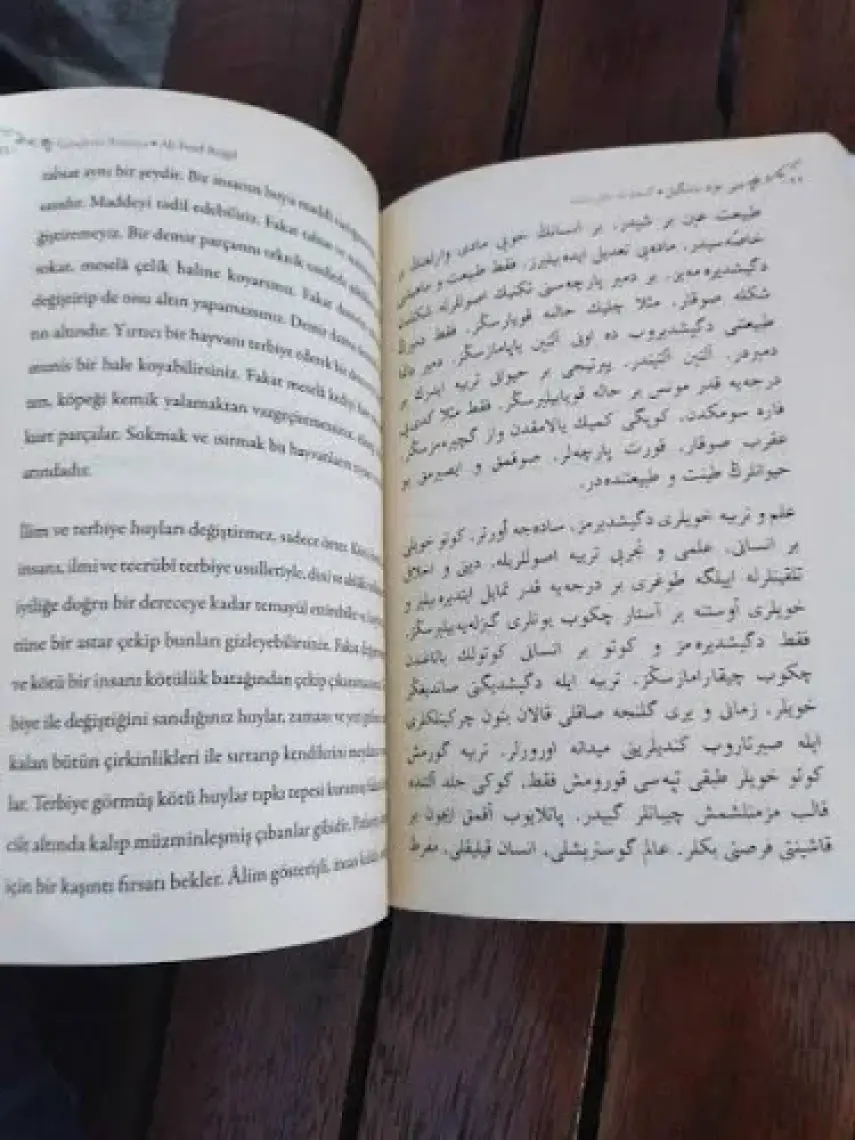 Ali Fuad Başgil
tabiat aynı bir şeydir. Bir insanın huyu maddî varlığının
Maddeyi tadil edebiliriz. Fakat tabiat ve
ğiştiremeyiz. Bir demir parçasını teknik usullerle
sokar, meselâ çelik haline koyarsınız. Fakat demirin
değiştirip de onu altın yapamazsınız. Demir daima
altındır. Yırtıcı bir hayvanı terbiye ederek bir
munis bir hale koyabilirsiniz. Fakat meselâ kediyi
köpeği kemik yalamaktan vazgeçiremezsiniz.
kurt parçalar. Sokmak ve ısırmak bu hayvanların
İlim ve terbiye huyları değiştirmez, sadece örter. Kötü
insanı, ilmî ve tecrübî terbiye usulleriyle, dinî ve ahlâkî
iyiliğe doğru bir dereceye kadar temayül ettirebilir ve
tüne bir astar çekip bunları gizleyebilirsiniz. Fakat
ve kötü bir insanı kötülük batağından çekip çıkaramazsınız.
biye ile değiştiğini sandığınız huylar, zamanı ve yeri
kalan bütün çirkinlikleri ile sırtarıp kendilerini meydana
lar. Terbiye görmüş kötü huylar tıpkı tepesi kurumuş
cilt altında kalıp müzminleşmiş çıbanlar gibidir.
için bir kaşıntı fırsatı bekler. Âlim gösterişli, insan
طبیعت عین بر شیدر. بر انسانڭ خویی مادی وارلغنڭ بر
خاصه‌سیدر. ماده‌یی تعدیل ایده‌بیلیرز. فقط طبیعت و ماهیتی
دگیشدیره‌مه‌یز. بر دمیر پارچه‌سنی تکنیك اصوللرله شکلدن
شکله صوقار، مثلا چلیك حالنه قویارسڭز. فقط دمیرڭ
طبیعتنی دگیشدیروب ده اونی آلتین یاپامازسڭز. دمیر دائما
دمیردر. آلتین آلتیندر. ییرتیجی بر حیوانی تربیه ایدرك بر
درجه‌یه قدر مونس بر حاله قویابیلیرسڭز. فقط مثلا کدی‌یی
فاره سومکدن، کوپگی کمیك یالامقدن واز گچیره‌مزسڭز.
عقرب صوقار، قورت پارچه‌لر. صوقمق و ایصیرمق بو
حیوانلرڭ طینت و طبیعتنده‌در.
علم و تربیه خویلری دگیشدیرمز، ساده‌جه اورتر. کوتو خویلی
بر انسانی، علمی و تجربی تربیه اصوللریله، دینی و اخلاقی
تلقینلرله اییلگه طوغری بر درجه‌یه قدر تمایل ایتدیره‌بیلیر و
خویلری اوستنه بر آستار چکوب بونلری گیزله‌یه‌بیلیرسڭز.
فقط دگیشدیره‌مز و کوتو بر انسانی کوتولك باتاغندن
چکوب چیقارامازسڭز. تربیه ایله دگیشدیگنی صاندیغڭز
خویلر، زمانی و یری گلنجه صاقلی قالان بتون چرکینلکلری
ایله صیرتاروب کندیلرینی میدانه اورورلر. تربیه گورمش
کوتو خویلر طبقی تپه‌سی قورومش فقط، کوکی جلد آلتنده
قالب مزمنلشمش چیبانلر گیبدر. پاتلایوب آقمق ایچون بر
قاشینتی فرصتی بکلر. عالم گوستریشلی، انسان قیلیقلی، مفرط